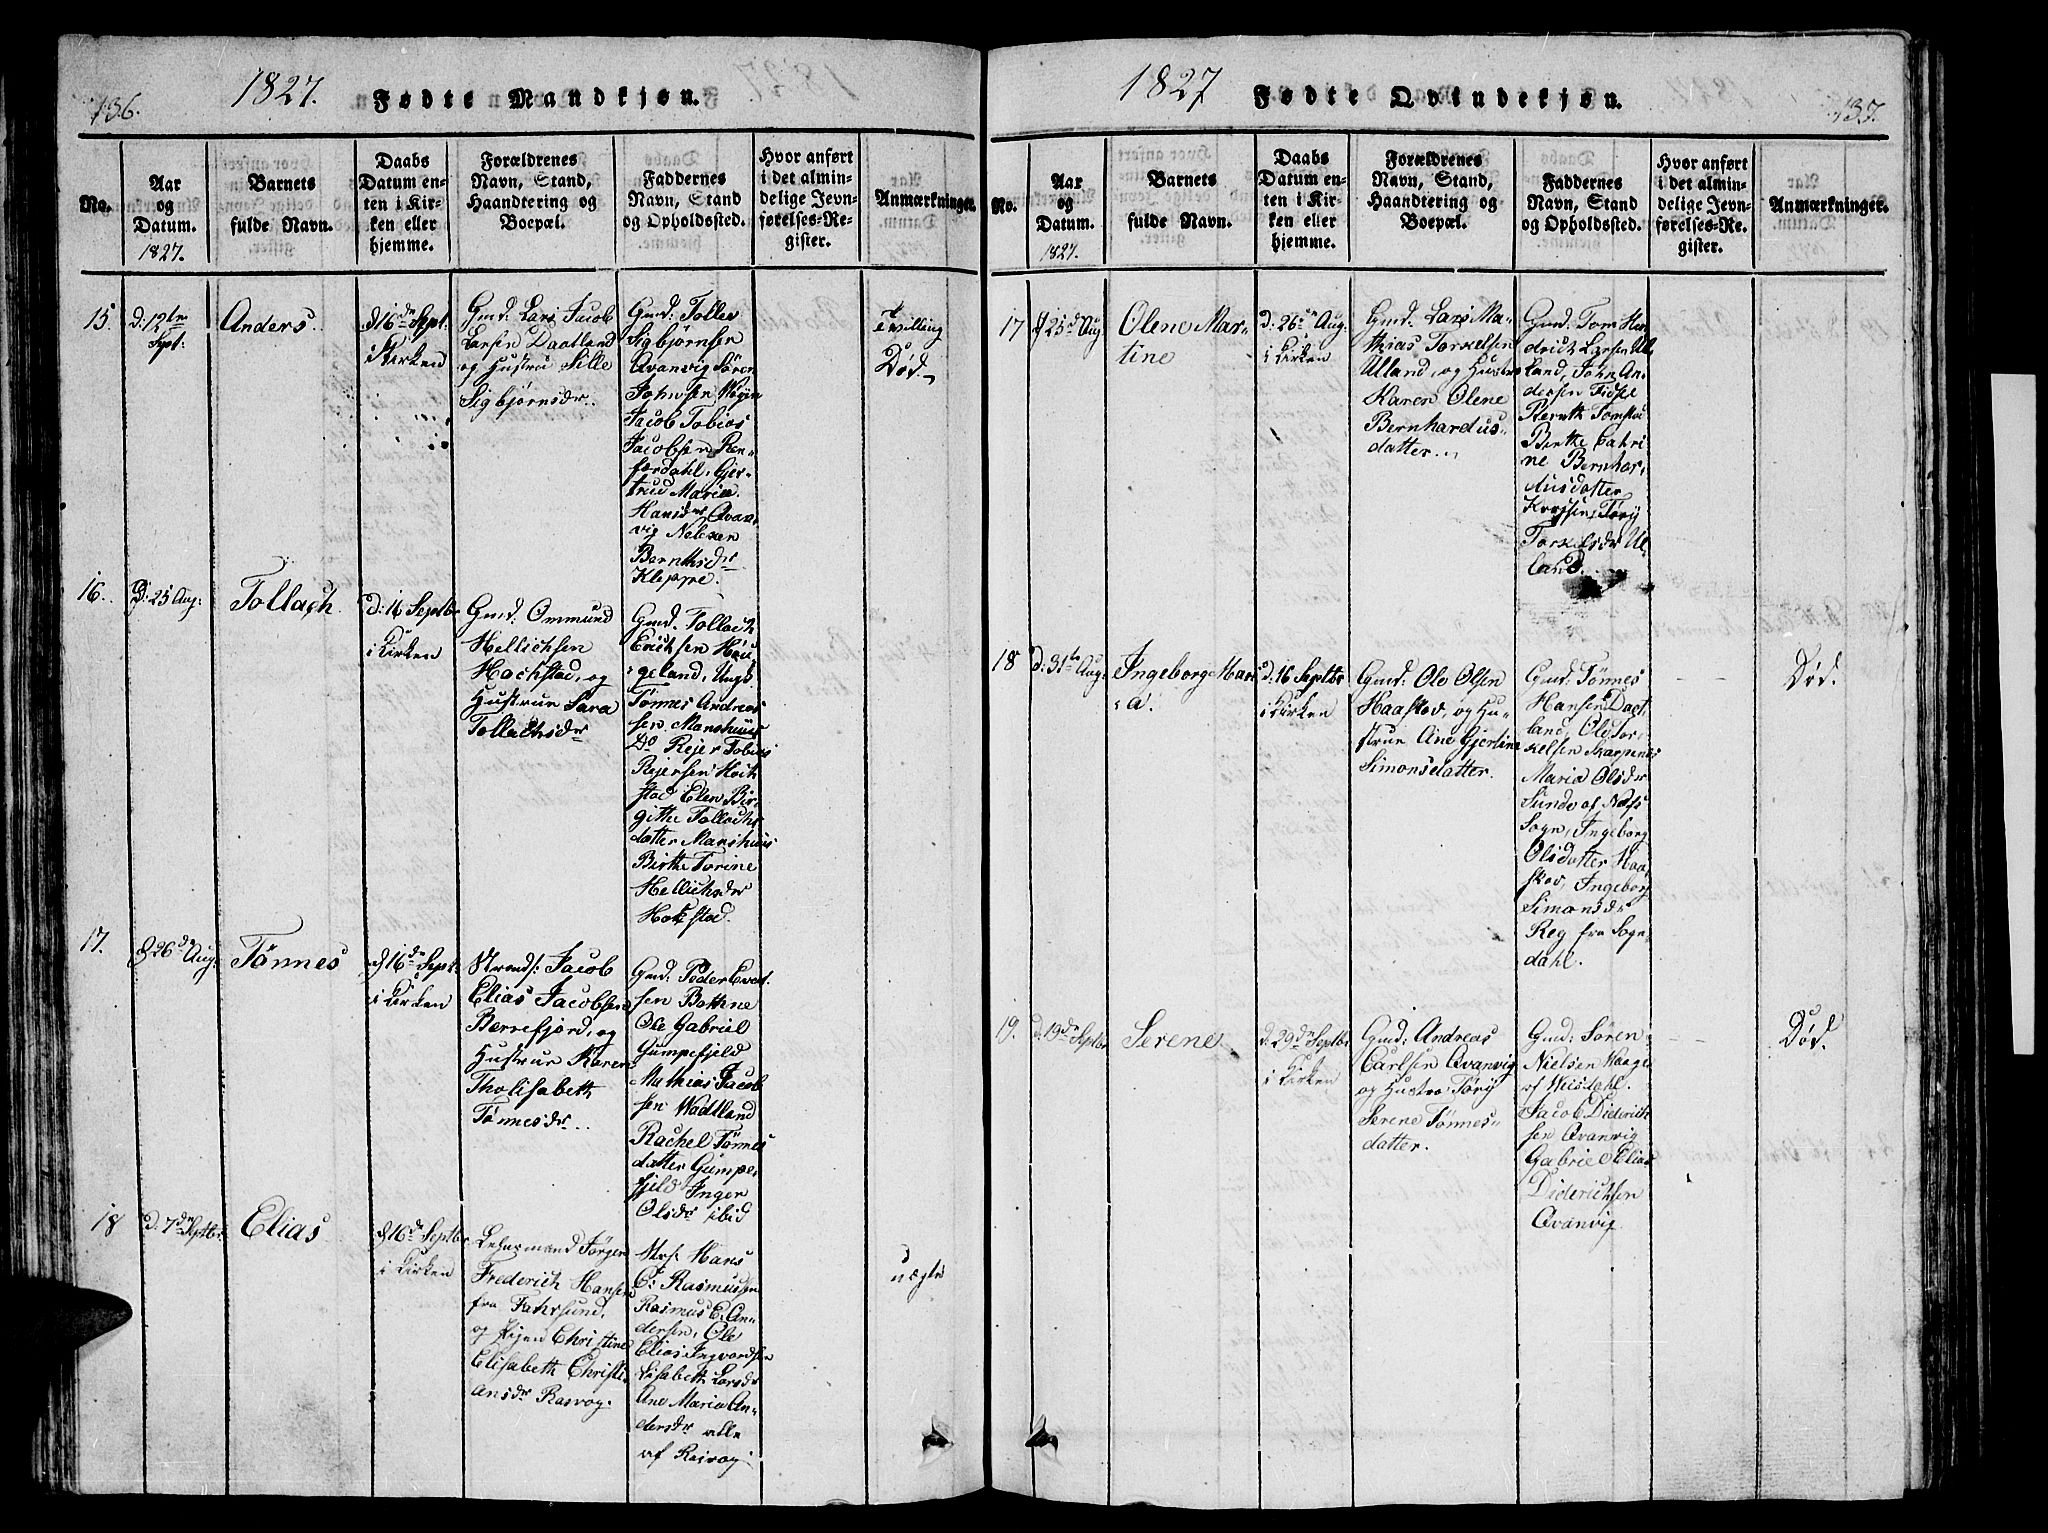 136.
1827.
Fødte Mandkjøn.
No.
Aar
og
Datum.
1827.
Barnets
fulde Navn.
Daabs
Datum en-
ten i Kir-
ken eller
hjemme.
Forældrenes
Navn, Stand,
Haandtering og
Boepæl.
Faddernes
Navn, Stand
og Opholdssted.
Hvor anført
i det almin-
delige Jevn-
førelses-Re-
gister.
Anmærkninger.
15.
d: 12te
Sept:
Anders.
d 16de Sept:
i Kirken
Gmd: Lars Jacob
Larsen Daatland
og Hustru Sille
Sigbjørnsdr.
Gmd: Tollev
Sigbjørnsen
Qvanvig Sören
Johnsen
Jacob Tobias
Jacobsen
Gjer-
trud Marie
Hansdr Qvan-
vig
Berntsdr
Kleppe.
Tvilling
Død
16.
d: 25 Aug:
Tollach.
d: 16 Septbr
i Kirken
Gmd: Ommund
Hellichsen
Hochstad, og
Hustrue Sara
Tollachsdr
Gmd: Tollach
Erichsen Hau-
geland, Ungk.
Tönnes Andreas
sen Monshuus
Do Rejer Tobias
Rejersen Hock
stad Elen Bir-
githe Tollachs
datter Monshuus
Birthe Torine
Hellichsdr
Hokstad.
17.
d 26d Aug:
Tönnes
d 16de Sept:
i Kirken
Strands: Jacob
Elias Jacobsen
Berrefjord, og
Hustrue Karen
Tholisabeth
Tönnesdr
Gmd: Peder Evert
sen Bothne
Ole Gabriel
Gumpefjeld
Mathias Jacob
sen Wadtland
Rachel Tönnes
datter Gumpe-
fjeld Inger
Olsdr ibid
18
d: 7de Septbr.
Elias
d 16de Septbr.
i Kirken
Lehnsmand Jørgen
Frederich Hansen
fra Fahrsund,
og Pigen Christine
Elisabeth Christi-
ansdr Rasvog.
Strs: Hans
C: Rasmussen
Rasmus C. An-
dersen, Ole
Elias Ingvordsen
Lisabeth Larsdr
Ane Maria An-
dersdr alle
af Rasvog
uægte
1827
Fødte Qvindekjøn.
137.
No.
Aar
og
Datum.
1827.
Barnets
fulde Navn.
Daabs
Datum en-
ten i Kir-
ken eller
hjemme.
Forældrenes
Navn, Stand,
Haandtering og
Boepæl.
Faddernes
Navn, Stand
og Opholdssted.
Hvor anført
i det almin-
delige Jevn-
førelses-Re-
gister.
Anmærkninger.
17
d 25d Aug
Olene Mar-
tine
d: 26de Aug:
i Kirken
Gmd: Lars Ma-
thias Torkelsen
Ulland, og Hustru
Karen Olene
Bernhardus-
datter.
Gmd: Tom Hen
drich Larsen Ul-
land, John An-
dersen Fidje
Bernth
Birthe Cathri
ne Bernhar-
dusdatter
Törg
Torkelsdr Ul
land.
18
d: 31te Aug:
Ingeborg Mari
a.
d: 16 Septbr
i Kirken
Gmd: Ole Olsen
Haaskov, og Hu-
strue Ane Gjertine
Simonsdatter.
Gmd: Tönnes
Hansen Daat
land, Ole Tor
kelsen Skarpenes
Maria Olsdr
Sunde af Næss
Sogn, Ingeborg
Olsdatter Haa
skov, Ingeborg
Simonsdr
Reg fra Sogn
dahl.
Død.
19.
d: 19de Septbr
Serene
d: 29de Septbr
i Kirken
Gmd: Andreas
Carlsen Qvanvig
og Hustru Törg
Serene Tönnes-
datter.
Gmd: Sören
Nielsen Waage
af
Jacob Diderich
sen Qvanvig
Gabriel Elias
Diderichsen
Qvanvig
Død.